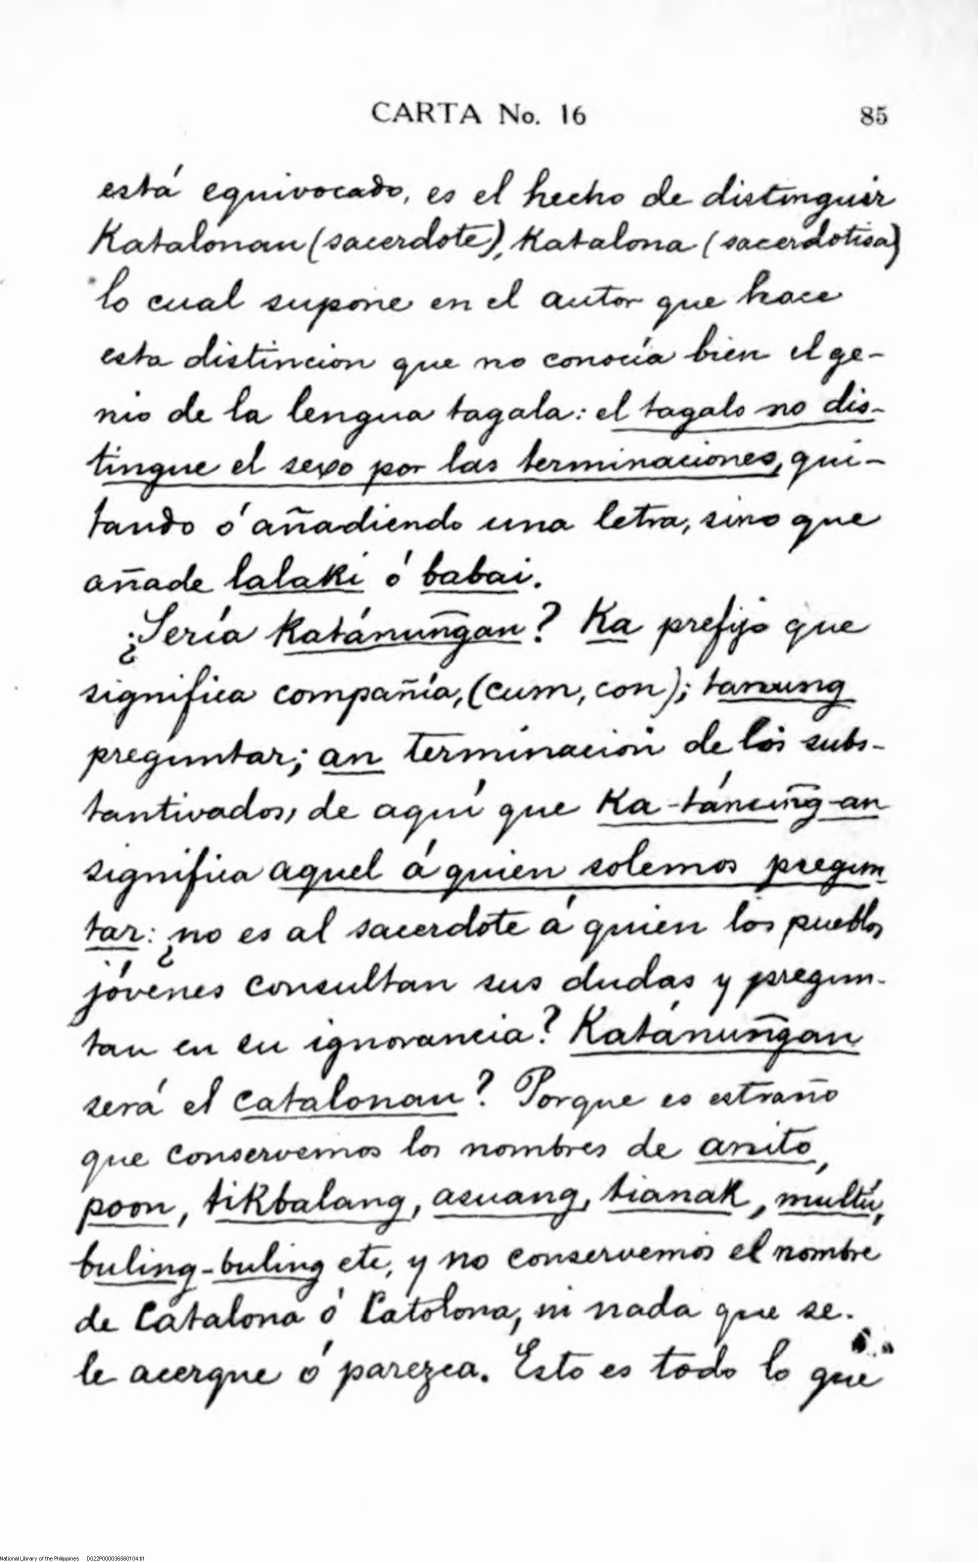 CARTA No. 16
85
está equivocado, es el hecho de distinguir
Katalonan (sacerdote), Katalona (sacerdotisa)
lo cual supone en el autor que hace
esta distincion que no conocía bien el ge-
nio de la lengua tagala: el tagalo no dis-
tingue el sexo por las terminaciones, qui-
tando ó añadiendo una letra, sino que
añade lalaki ó babai.
¿Sería Katánun͠gan? Ka prefijo que
significa compañía, (cum, con); tanung
preguntar; an terminacion de los subs-
tantivados, de aquí que Ka-tánun͠g-an
significa aquel á quien solemos pregun-
tar: ¿no es al sacerdote á quien los pueblos
jóvenes consultan sus dudas y pregun-
tan en su ignorancia? Katánun͠gan
será el catalonan? Porque es estraño
que conservemos los nombres de anito,
poon, tikbalang, asuang, tianak, multú,
buling-buling etc, y no conservemos el nombre
de Catalona ó Catolona, ni nada que se
le acerque ó parezca. Esto es todo lo que
National Library of the Philippines D022P000036560104.tif